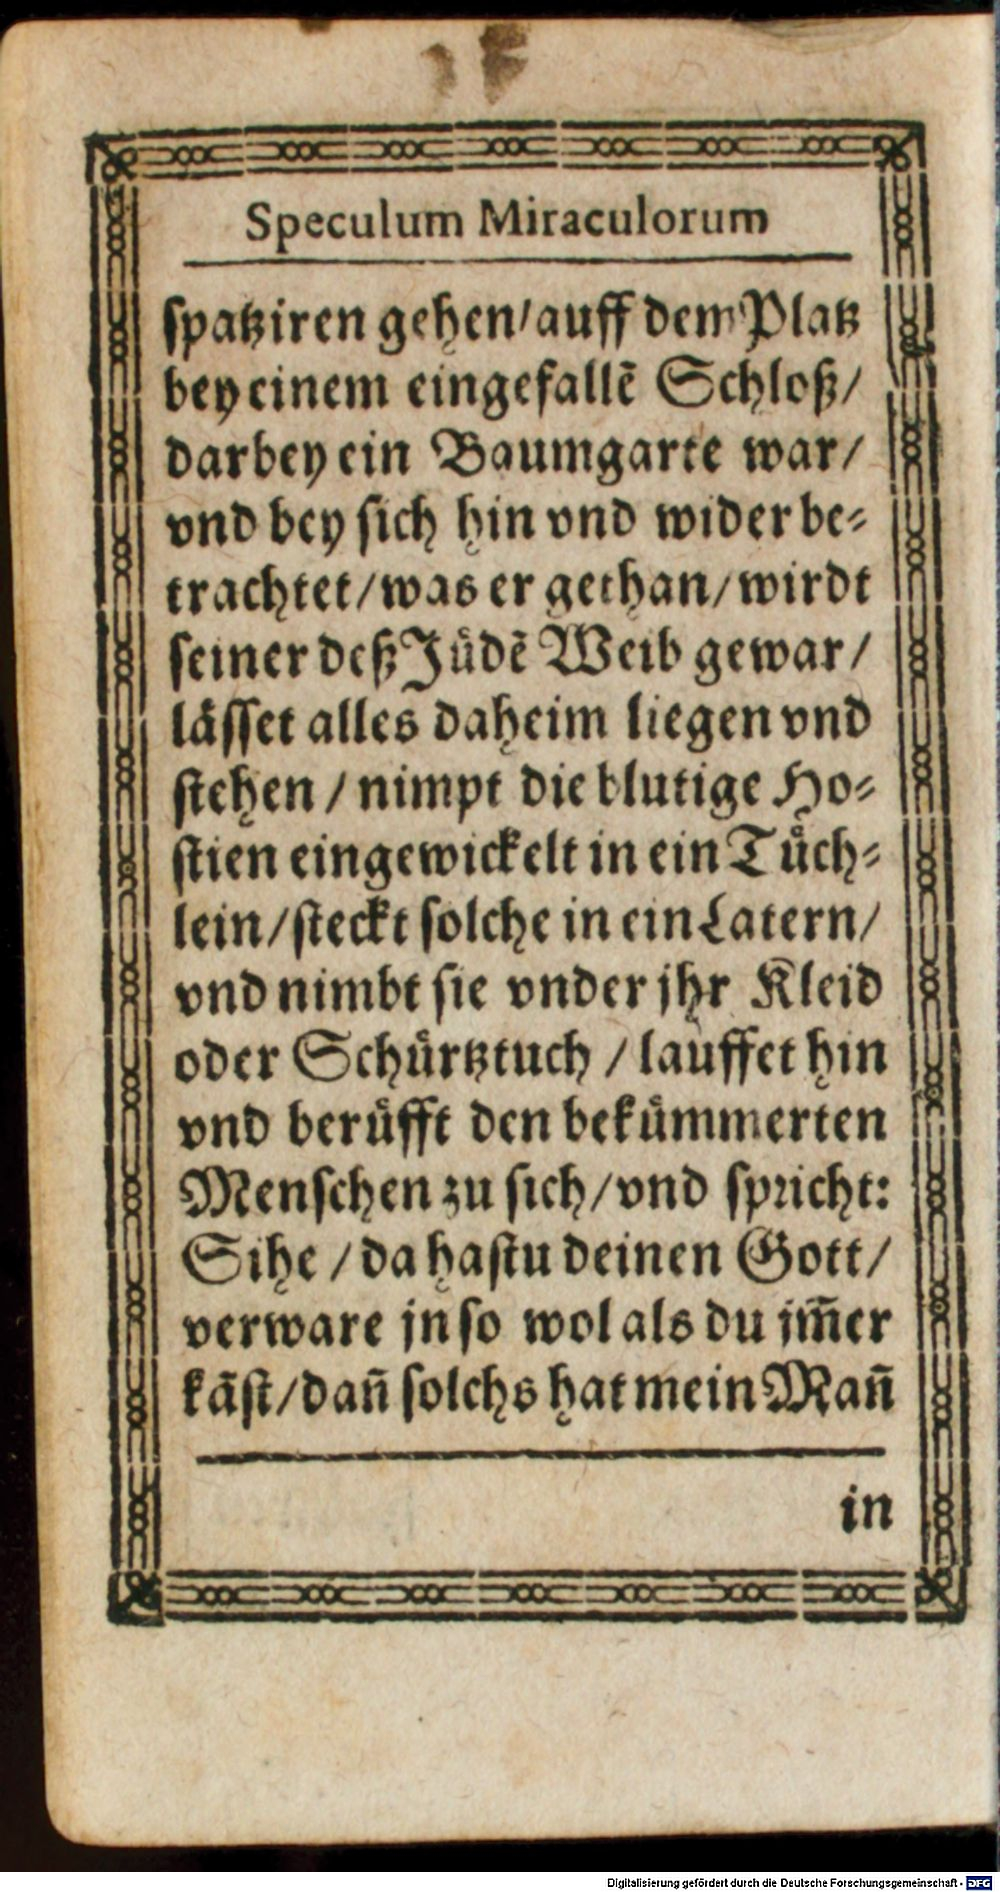 Speculum Miraculorum
spatziren gehen/auff dem Platz
bey einem eingefallẽ Schloß/
darbey ein Baumgarte war/
vnd bey sich hin vnd wider be-
trachtet/was er gethan/wirdt
seiner deß Jůdẽ Weib gewar/
lässet alles daheim liegen vnd
stehen / nimpt die blutige Ho-
stien eingewickelt in ein Tůch-
lein/steckt solche in ein Latern/
vnd nimbt sie vnder jhr Kleid
oder Schůrtztuch / lauffet hin
vnd berůfft den bekůmmerten
Menschen zu sich/vnd spricht:
Sihe / da hastu deinen Gott/
verware jn so wol als du jm̃er
kãst/dañ solchs hat mein Mañ
in
Digitalisierung gefördert durch die Deutsche Forschungsgemeinschaft - DFG